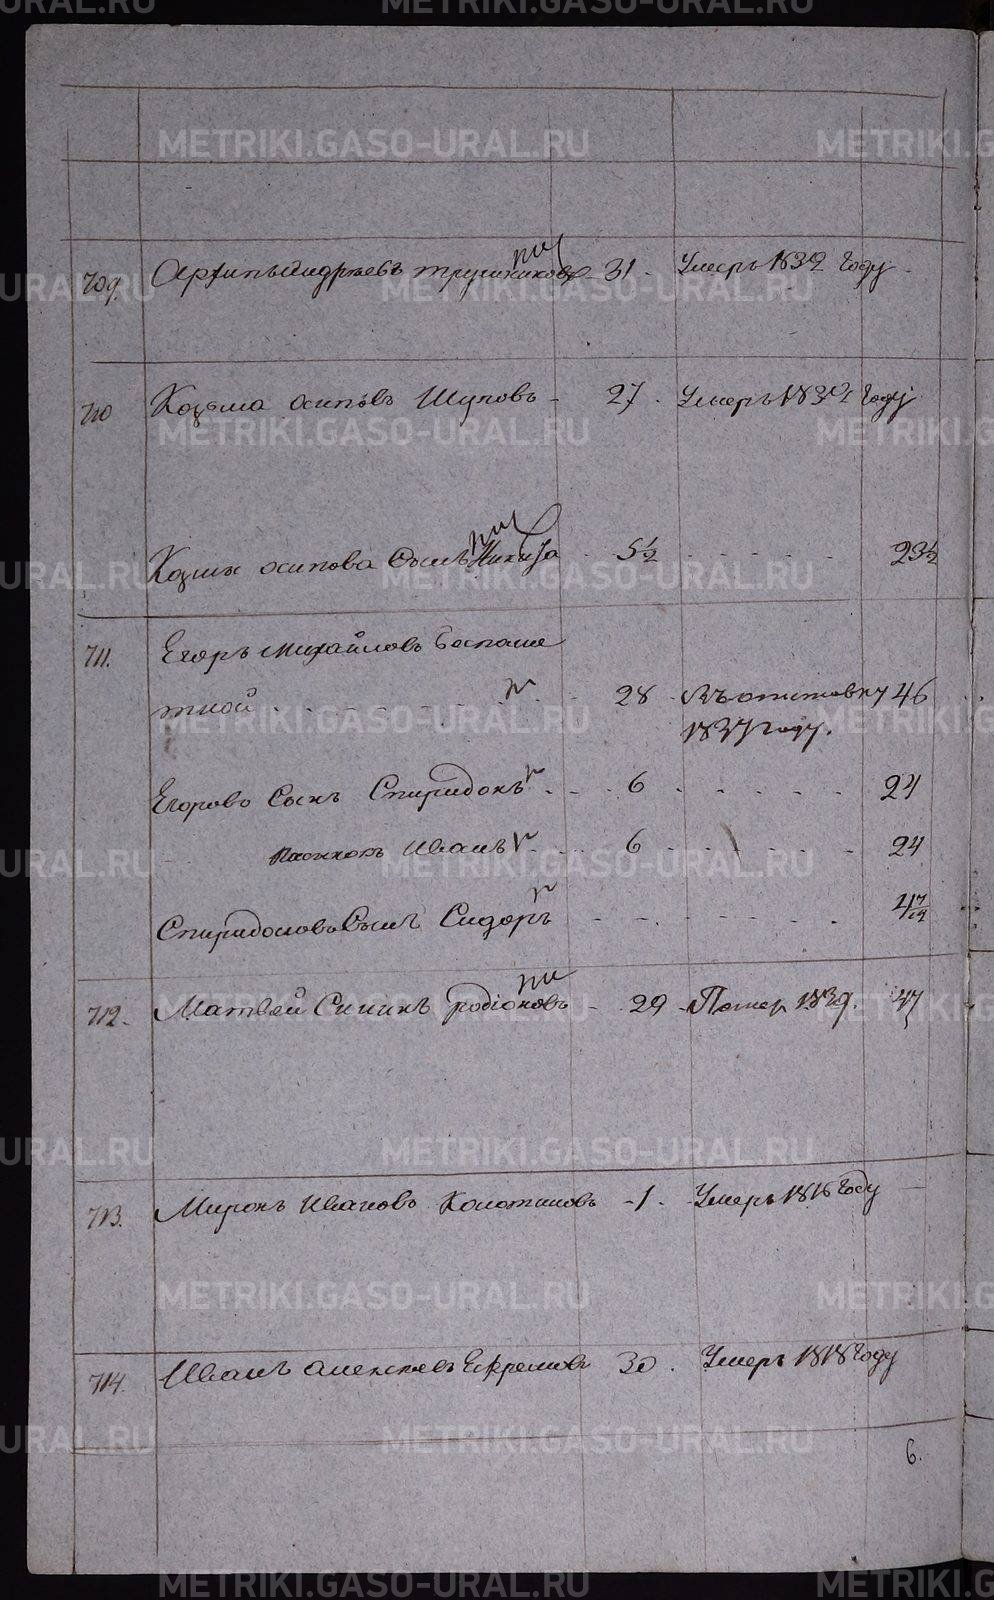 METRIKI.GASO-URAL.RU
709. Архипъ Андреевъ 31. Умеръ 1832 году.
710 Козьма Осиповъ Шуповъ - 27. Умеръ 1832 году
Козмы Осипова Сынъ Никита 5½ 23½
711. Егоръ Михайловъ Беспаме
тной 28. Въ отстовку 46
1837 году.
Егорово Сынъ Спиридонъ 6 24
Иванъ 6 24
Спиридоновъ Сынъ Сидоръ 4
712. Матвей Сининъ Родіоновъ - 29 1839. 47
713. Миронъ Ивановъ Колотиловъ - 1. Умеръ 1816 году
714. Иванъ Алексеевъ Ефремовъ 30. Умеръ 1818 году
6.